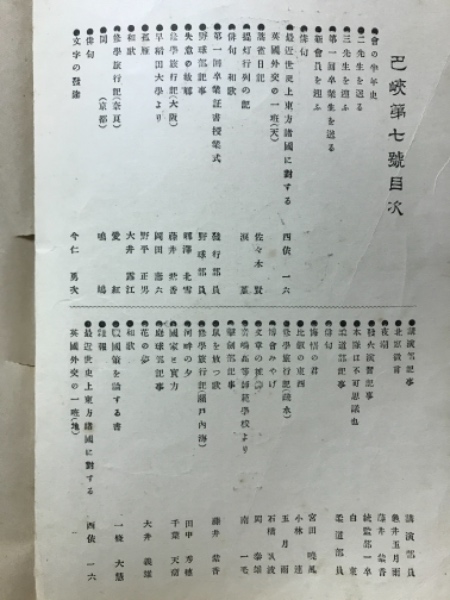 巴峽第七號目次
●會の半年史
●二先生を送る
●三先生を迎ふ
●第一回卒業生を送る
●新會員を迎ふ
●俳句
●最近世史上東方諸國に對する
英國外交の一班(天) 西依一六
●籠雀日記 佐々木賢
●提灯行列の記
●俳句 和歌
●第一回卒業証書授與式
●野球部記事 野球部員
●失意の故郷 柳澤北雪
●修學旅行記(大阪) 藤井紫香
●早稻田大學より 岡田
●孤雁 野平正男
●和歌 大井露江
●修學旅行記(奈良) 愛紅
●同 (京都) 鳴鶴
●俳句
●文字の發達 今仁勇次
●講演部記事 講演部員
●北京 龜井五月雨
●夜網 藤井紫香
●發火演習記事 統監部一卒
●本隊は不可思議也 白東
●柔道部記事 柔道部員
●俳句
●悔悟の君 宮田曉風
●比叡の東西 小林蓮
●修學旅行記(疏水) 五月雨
●博會みやげ 石橋
●文章の 岡泰雄
●高等師範學校より 南一毛
●劍部記事
●鼠を放つ歌 藤井紫香
●修學旅行記(瀨戸內海)
●河畔の夕 田中秀穂
●國家と實力 千葉天南
●庭球部記事
●花の夢 大井義雄
●和歌
●國策を論ずる書 一條大慧
●雜報
●最近世史上東方諸國に對する
英國外交の一班(地) 西依一六